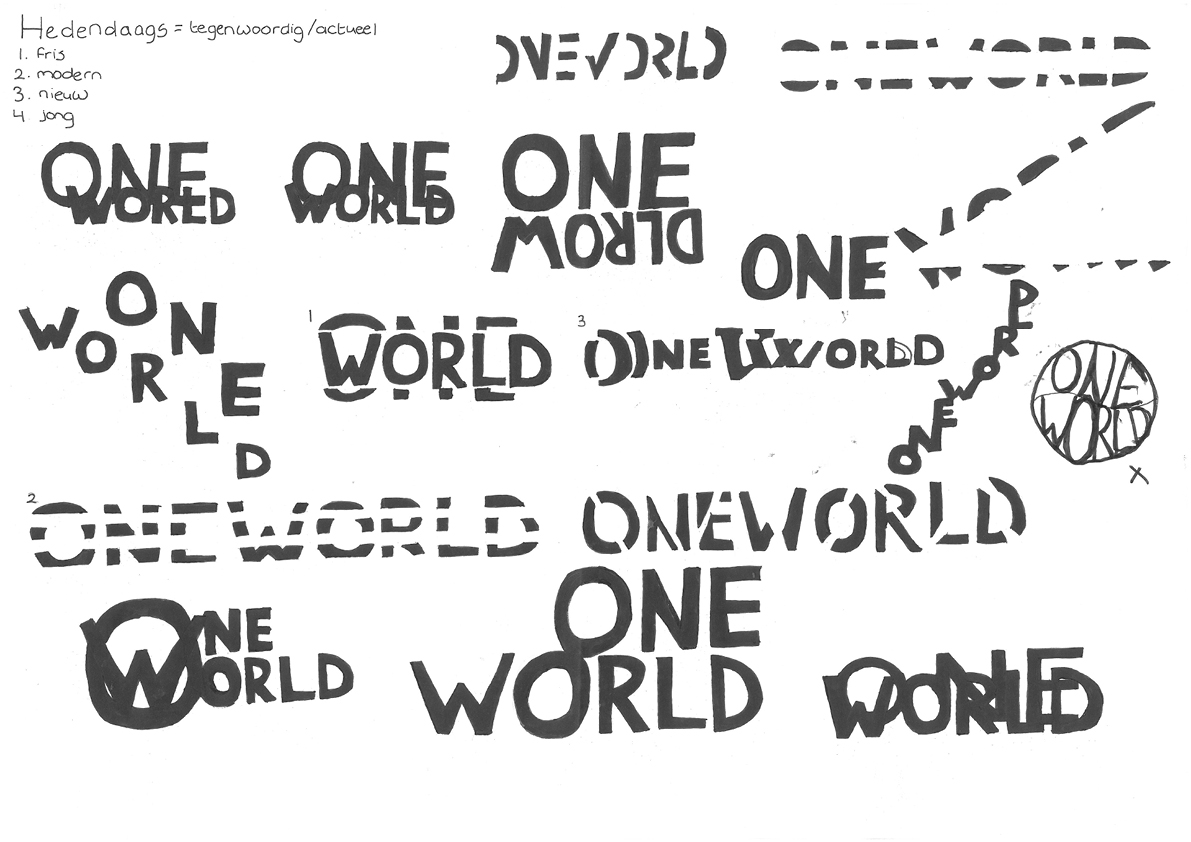 Hedendaags = tegenwoordig/actueel
1. fris
2. modern
3. nieuw
4. jong
ONEWORLD
ONEWORLD
ONE
WORLD
ONE
WORLD
ONE
WORLD
ONE
WORLD
ONE
WORLD
1
ONE
WORLD
3
ONEWORLD
ONEWORLD
ONE
WORLD
x
2
ONEWORLD
ONEWORLD
ONE
WORLD
ONE
WORLD
ONE
WORLD